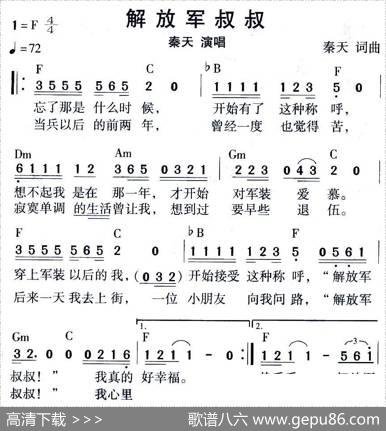 解放军叔叔
1=F 4/4
♩=72
秦天 演唱
秦天 词曲
F C ♭B F
3555 565 2 0 1111 123 5 0
忘了那是 什么时 候， 开始有了 这种称 呼，
当兵以后 的前两 年， 曾经一度 也觉得 苦，
Dm Am Gm C
6111 12 365 0321 223 043 2 0
想不起我 是在 那一年， 才开始 对军装 爱 慕。
寂寞单调 的生活曾让我， 想到过 要早些 退 伍。
F C ♭B F
3555 3565 2 (032) 1111 123 5 0561
穿上军装 以后的 我， 开始接受 这种称 呼， “解放军
后来一天 我去上 街， 一位 小朋友 向我问 路， “解放军
Gm C F 1. 2.
32. 0 0 0216 121 1 - 0 :‖ 121 1 - 561
叔叔！” 我真的 好幸福。
叔叔！” 我心里
高清下载 >>>
歌谱八六 www.gepu86.com